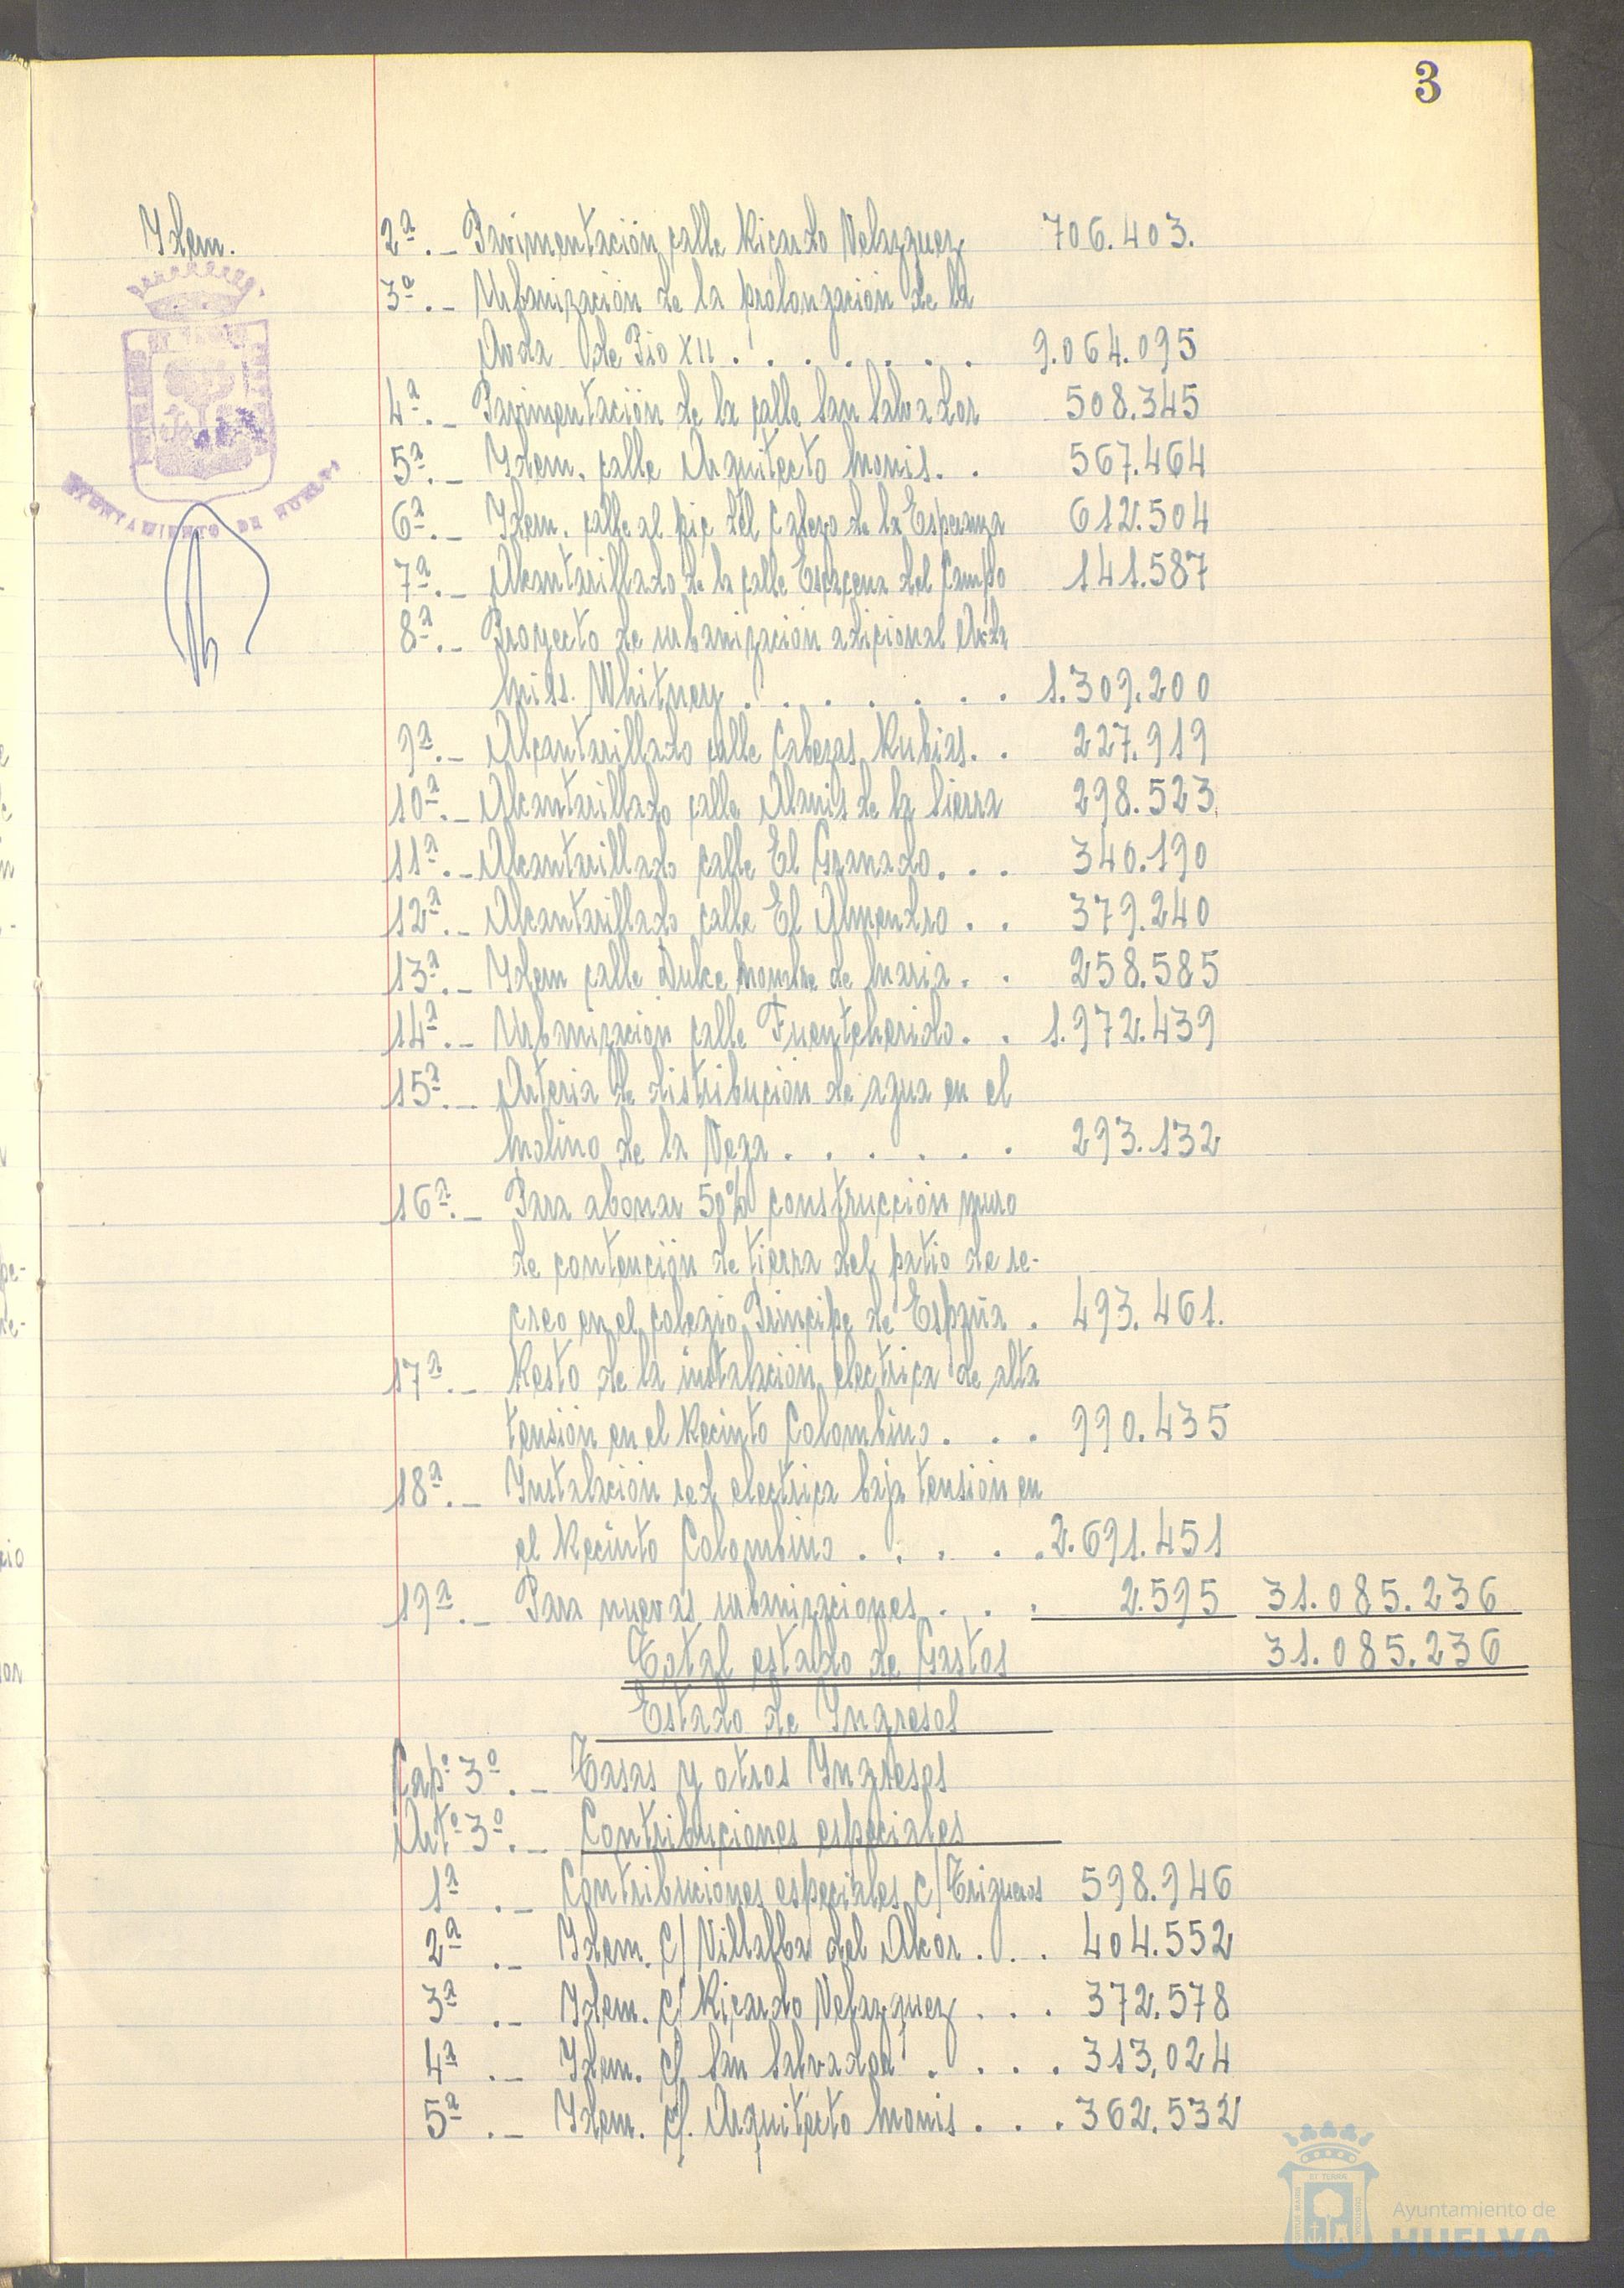 3
Idem.
2ª.- Pavimentación calle Ricardo Velazquez 706.403.
3ª.- Urbanización de la prolongación de la
Avda de Pio XII . . . . . . . 9.064.095
4ª.- Pavimentación de la calle San Salvador 508.345
5ª.- Idem. calle Arquitecto Monis. . 567.464
6ª.- Idem. calle al pie del Cabezo de la Esperanza 612.504
7ª.- Alcantarillado de la calle Escacena del Campo 141.587
8ª.- Proyecto de urbanización adicional Avda
Miss. Whitney . . . . . . . 1.309.200
9ª.- Alcantarillado calle Cabezas Rubias. . 227.919
10ª.- Alcantarillado calle Alanis de la Sierra 298.523.
11ª.- Alcantarillado calle El Granado. . . 340.190
12ª.- Alcantarillado calle El Almendro . . 379.240
13ª.- Idem calle Dulce Nombre de Maria. . 258.585
14ª.- Urbanización calle Fuenteherido. . 1.972.439
15ª.- Arteria de distribución de agua en el
Molino de la Vega . . . . . . 293.132
16ª.- Para abonar 50% construcción muro
de contención de tierra del patio de re-
creo en el colegio Principe de España . 493.461.
17ª.- Resto de la instalación electrica de alta
tensión en el Recinto Colombino . . . 990.435
18ª.- Instalación red electrica baja tensión en
el Recinto Colombino . . . . . 2.691.451
19ª.- Para nuevas urbanizaciones . . . 2.595 31.085.236
Total estado de Gastos 31.085.236
Estado de Ingresos
Capº 3º.- Tasas y otros Ingresos
Artº 3º.- Contribuciones especiales
1ª .- Contribuciones especiales c/ Trigueros 598.946
2ª .- Idem. c/ Villalba del Alcor . . . 404.552
3ª .- Idem. c/ Ricardo Velazquez . . . 372.578
4ª .- Idem. c/ San Salvador . . . . 313.024
5ª .- Idem. c/. Arquitecto Monis . . . 362.532
AYUNTAMIENTO DE HUELVA
Ayuntamiento de
HUELVA